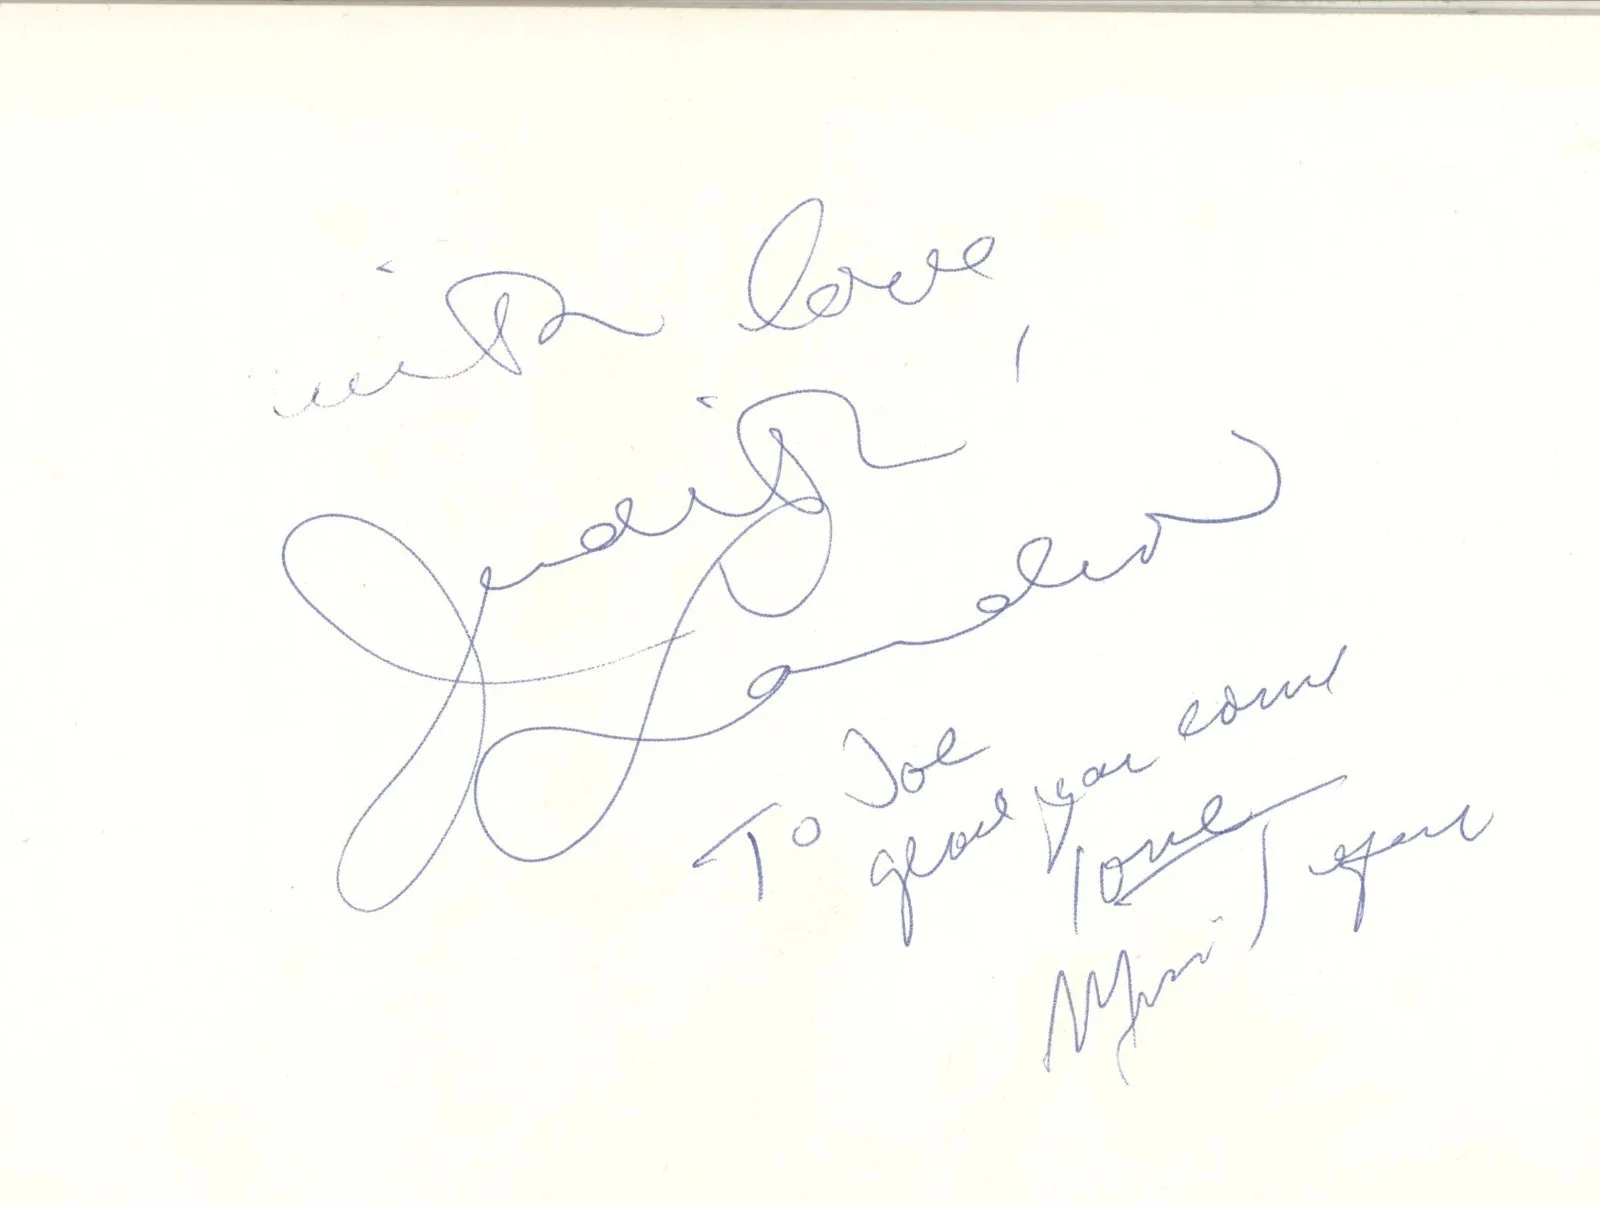 with love,
Judith
Landers
To Joe
glad you came
love
Mimi